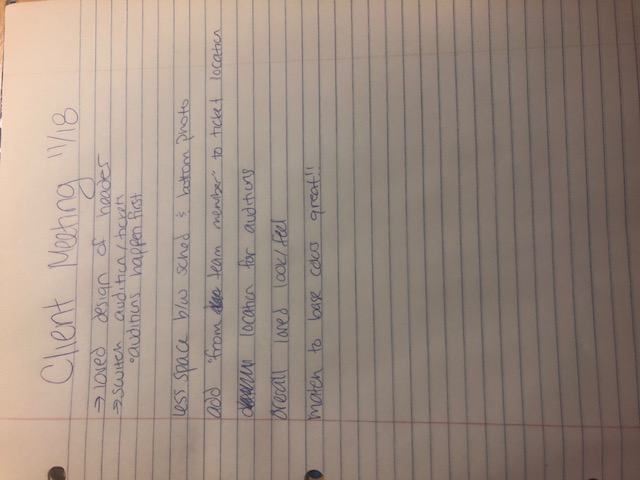 Client Meeting 11/18
→ loved design of header
→ switch audition/tickets
• auditions happen first
less space b/w sched & bottom photo
add "from team member" to ticket location
location for auditions
overall loved look/feel
match to base colors great!!